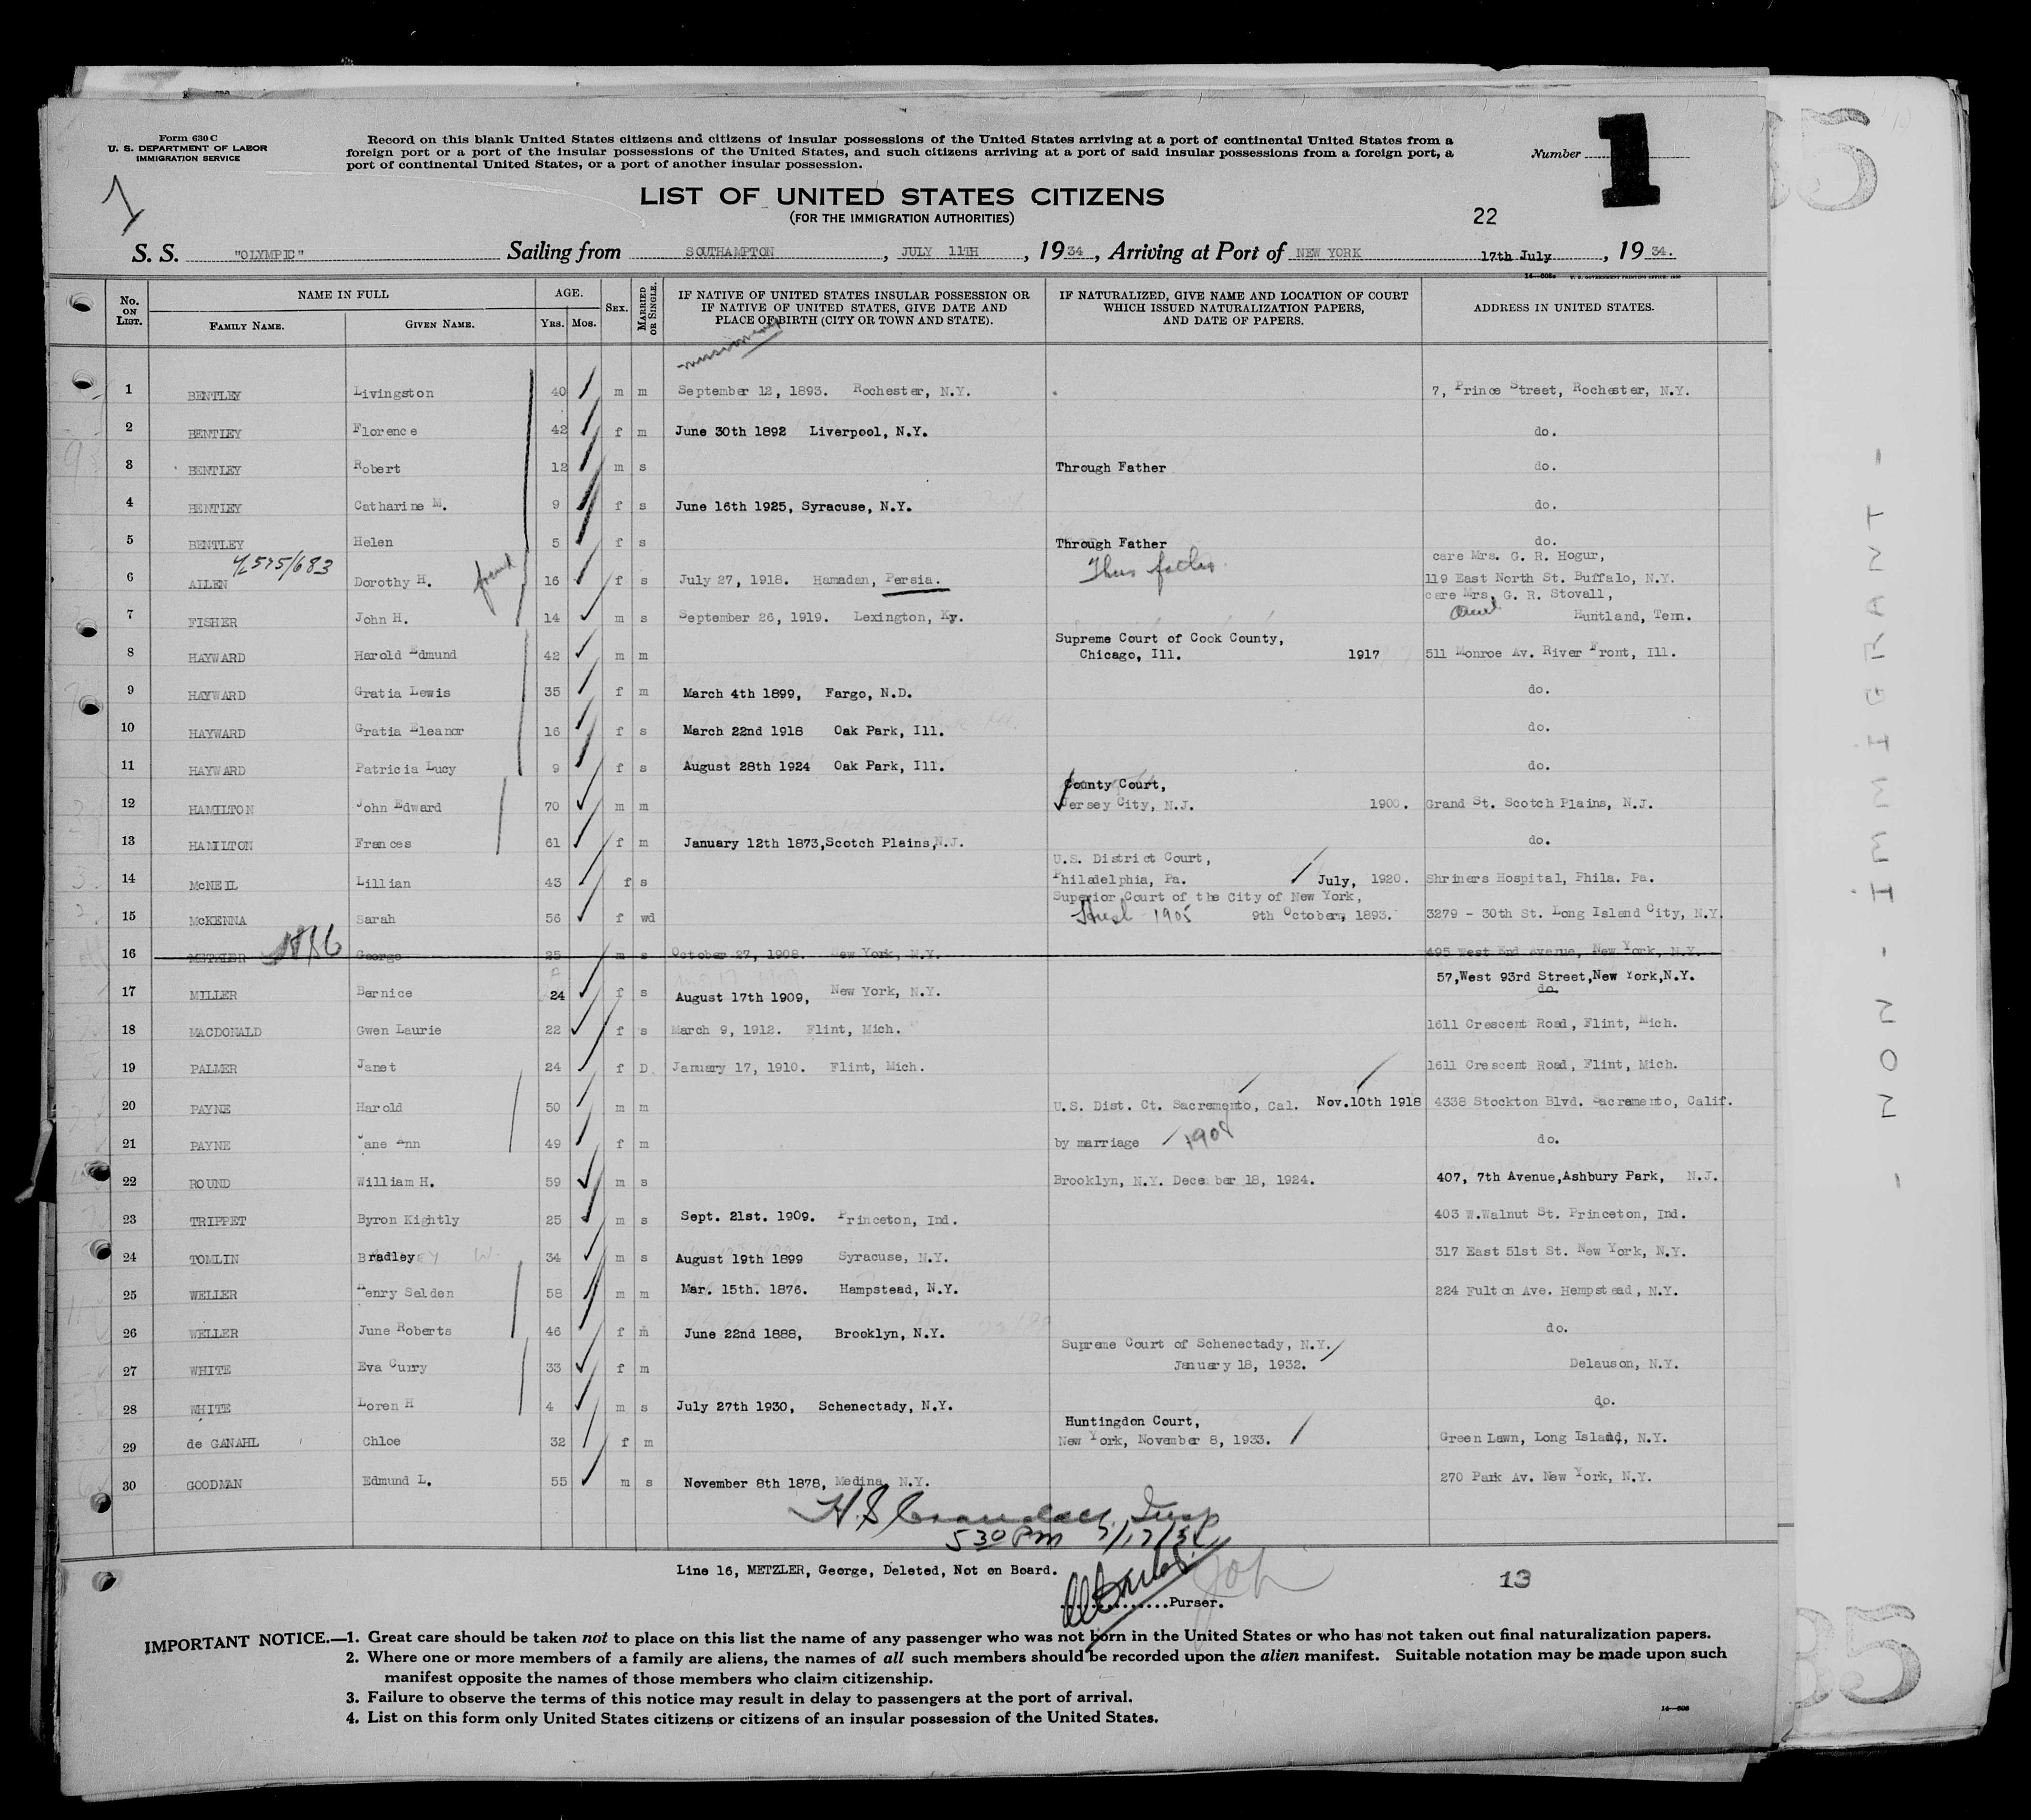 Form 630 C
U. S. DEPARTMENT OF LABOR
IMMIGRATION SERVICE
Record on this blank United States citizens and citizens of insular possessions of the United States arriving at a port of continental United States from a
foreign port or a port of the insular possessions of the United States, and such citizens arriving at a port of said insular possessions from a foreign port, a
port of continental United States, or a port of another insular possession.
Number 1
1
LIST OF UNITED STATES CITIZENS
(FOR THE IMMIGRATION AUTHORITIES)
22
S. S. "OLYMPIC" Sailing from SOUTHAMPTON, JULY 11TH, 1934, Arriving at Port of NEW YORK 17th July, 1934.
No. ON LIST. NAME IN FULL FAMILY NAME. GIVEN NAME. AGE. Yrs. Mos. SEX. MARRIED OR SINGLE. IF NATIVE OF UNITED STATES INSULAR POSSESSION OR IF NATIVE OF UNITED STATES, GIVE DATE AND PLACE OF BIRTH (CITY OR TOWN AND STATE). IF NATURALIZED, GIVE NAME AND LOCATION OF COURT WHICH ISSUED NATURALIZATION PAPERS, AND DATE OF PAPERS. ADDRESS IN UNITED STATES.
missionary
1 BENTLEY Livingston 40 m m September 12, 1893. Rochester, N.Y. 7, Prince Street, Rochester, N.Y.
2 BENTLEY Florence 42 f m June 30th 1892 Liverpool, N.Y. do.
3 BENTLEY Robert 12 m s Through Father do.
4 BENTLEY Catharine M. 9 f s June 16th 1925, Syracuse, N.Y. do.
5 BENTLEY Helen 5 f s Through Father do.
4/575/683 Thru father care Mrs. G. R. Hogur,
6 ALLEN Dorothy H. friend 16 f s July 27, 1918. Hamadan, Persia. 119 East North St. Buffalo, N.Y.
care Mrs. G. R. Stovall,
7 FISHER John H. 14 m s September 26, 1919. Lexington, Ky. Aunt Huntland, Tenn.
Supreme Court of Cook County,
8 HAYWARD Harold Edmund 42 m m Chicago, Ill. 1917 511 Monroe Av. River Front, Ill.
9 HAYWARD Gratia Lewis 35 f m March 4th 1899, Fargo, N.D. do.
10 HAYWARD Gratia Eleanor 16 f s March 22nd 1918 Oak Park, Ill. do.
11 HAYWARD Patricia Lucy 9 f s August 28th 1924 Oak Park, Ill. do.
County Court,
12 HAMILTON John Edward 70 m m Jersey City, N.J. 1900. Grand St. Scotch Plains, N.J.
13 HAMILTON Frances 61 f m January 12th 1873, Scotch Plains, N.J. do.
U.S. District Court,
14 McNEIL Lillian 43 f s Philadelphia, Pa. July, 1920. Shriners Hospital, Phila. Pa.
Superior Court of the City of New York,
15 McKENNA Sarah 56 f wd 1905 9th October, 1893. 3279 - 30th St. Long Island City, N.Y.
16 METZLER George 25 m s October 27, 1908. New York, N.Y. 495 West End Avenue, New York, N.Y.
57,West 93rd Street,New York,N.Y.
17 MILLER Bernice 24 f s August 17th 1909, New York, N.Y. do
18 MACDONALD Gwen Laurie 22 f s March 9, 1912. Flint, Mich. 1611 Crescent Road, Flint, Mich.
19 PALMER Janet 24 f D. January 17, 1910. Flint, Mich. 1611 Crescent Road, Flint, Mich.
20 PAYNE Harold 50 m m U.S. Dist. Ct. Sacramento, Cal. Nov.10th 1918 4338 Stockton Blvd. Sacramento, Calif.
21 PAYNE Jane Ann 49 f m by marriage 1908 do.
22 ROUND William H. 59 m s Brooklyn, N.Y. December 18, 1924. 407, 7th Avenue,Ashbury Park, N.J.
23 TRIPPET Byron Kightly 25 m s Sept. 21st. 1909. Princeton, Ind. 403 W.Walnut St. Princeton, Ind.
24 TOMLIN Bradley W. 34 m s August 19th 1899 Syracuse, N.Y. 317 East 51st St. New York, N.Y.
25 WELLER Henry Selden 58 m m Mar. 15th. 1876. Hampstead, N.Y. 224 Fulton Ave. Hempstead, N.Y.
26 WELLER June Roberts 46 f m June 22nd 1888, Brooklyn, N.Y. do.
Supreme Court of Schenectady, N.Y.
27 WHITE Eva Curry 33 f m January 18, 1932. Delauson, N.Y.
28 WHITE Loren H 4 m s July 27th 1930, Schenectady, N.Y. do.
Huntingdon Court,
29 de GANAHL Chloe 32 f m New York, November 8, 1933. Green Lawn, Long Island, N.Y.
30 GOODMAN Edmund L. 55 m s November 8th 1878, Medina, N.Y. 270 Park Av. New York, N.Y.
530 PM 7/17/34
Line 16, METZLER, George, Deleted, Not on Board.
13
Purser.
IMPORTANT NOTICE.—1. Great care should be taken not to place on this list the name of any passenger who was not born in the United States or who has not taken out final naturalization papers.
2. Where one or more members of a family are aliens, the names of all such members should be recorded upon the alien manifest. Suitable notation may be made upon such
manifest opposite the names of those members who claim citizenship.
3. Failure to observe the terms of this notice may result in delay to passengers at the port of arrival.
4. List on this form only United States citizens or citizens of an insular possession of the United States.
- NON - IMMIGRANT -